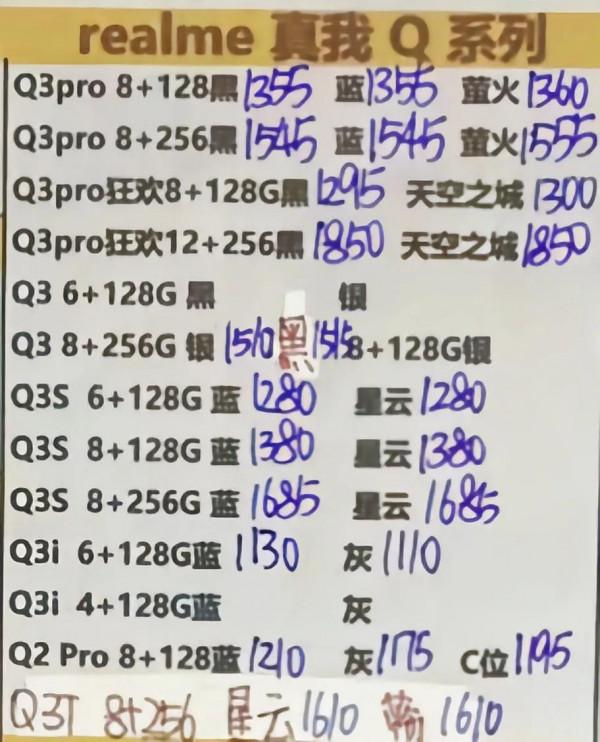 realme 真我 Q 系列
Q3pro 8+128黑1355 蓝1355 萤火1360
Q3pro 8+256黑1545 蓝1545 萤火1555
Q3pro狂欢8+128G黑1295 天空之城1300
Q3pro狂欢12+256黑1850 天空之城1850
Q3 6+128G 黑 银
Q3 8+256G 银1510黑1515 8+128G银
Q3S 6+128G 蓝1280 星云1280
Q3S 8+128G 蓝1380 星云1380
Q3S 8+256G 蓝1685 星云1685
Q3i 6+128G蓝1130 灰1110
Q3i 4+128G蓝 灰
Q2 Pro 8+128蓝1210 灰1175 C位1195
Q3T 8+256 星云1610 1610